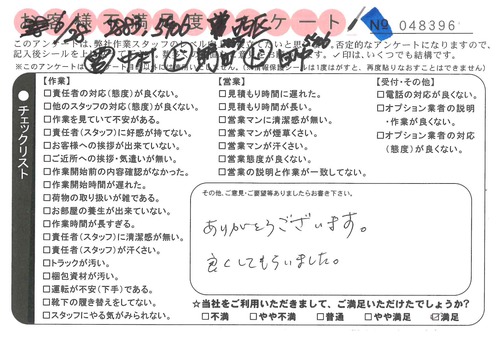 お客様不満足度アンケート
No 048396
このアンケートは、弊社作業スタッフのレベル
否定的なアンケートになりますので、
記入後シールを
✓印は、いくつでも結構です。
※このアンケートは
(※個人情報保護シールは1度はがすと、再度貼りなおすことはできません)
チェックリスト
【作業】
□責任者の対応(態度)が良くない。
□他のスタッフの対応(態度)が良くない。
□作業を見ていて不安がある。
□責任者(スタッフ)に好感が持てない。
□お客様への挨拶が出来ていない。
□ご近所への挨拶・気遣いが無い。
□作業開始前の内容確認がなかった。
□作業開始時間が遅れた。
□荷物の取り扱いが雑である。
□お部屋の養生が出来ていない。
□作業時間が長すぎる。
□責任者(スタッフ)に清潔感が無い。
□責任者(スタッフ)が汗くさい。
□トラックが汚い。
□梱包資材が汚い。
□運転が不安(下手)である。
□靴下の履き替えをしてない。
□スタッフにやる気がみられない。
【営業】
□見積もり時間に遅れた。
□見積もり時間が長い。
□営業マンに清潔感が無い。
□営業マンが煙草くさい。
□営業マンが汗くさい。
□営業態度が良くない。
□営業の説明と作業が一致してない。
【受付・その他】
□電話の対応が良くない。
□オプション業者の説明
・作業が良くない。
□オプション業者の対応
(態度)が良くない。
その他、ご意見・ご要望等ありましたらお書き下さい。
ありがとうございます。
良くしてもらいました。
☆当社をご利用いただきまして、ご満足いただけたでしょうか?
□不満 □やや不満 □普通 □やや満足 ☑満足